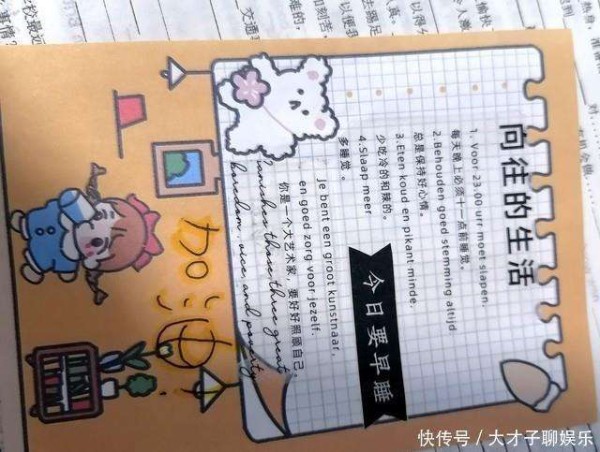 向往的生活
1. Voor 23:00 urr moet slapen.
每天晚上必须十一点前睡觉。
2.Behouden goed stemming altijd
总是保持好心情。
3.Eten koud en pikant minde.
少吃冷的和辣的。
4.Slaap meer
多睡觉。
今日要早睡
Je bent een groot kunstnaar,
en goed zorg voor jezelf.
你是一个大艺术家，要好好照顾自己。
banishes those three great
boredom, vice, and poverty
加油
快传号／大才子聊娱乐